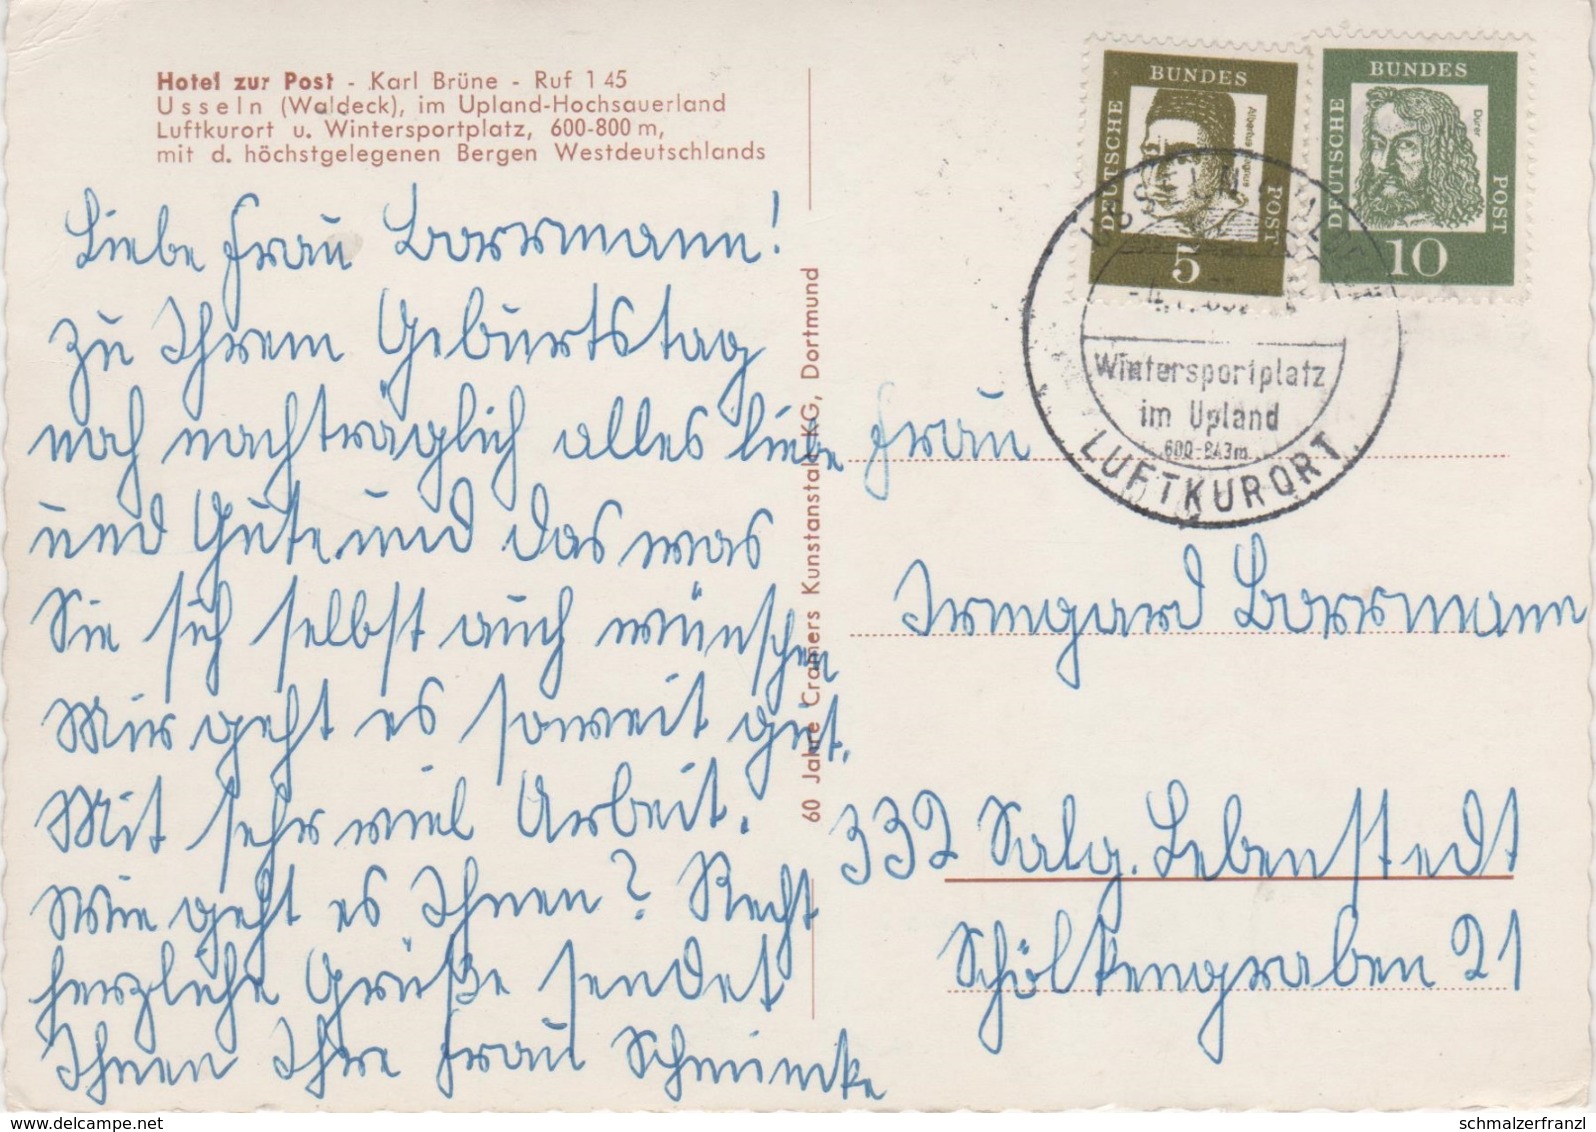 Hotel zur Post - Karl Brüne - Ruf 1 45
Usseln (Waldeck), im Upland-Hochsauerland
Luftkurort u. Wintersportplatz, 600-800 m,
mit d. höchstgelegenen Bergen Westdeutschlands
Liebe Frau Borrmann!
Zu Ihrem Geburtstag
noch nachträglich alles liebe
und Gute und das was
Sie sich selbst auch wünschen
Mir geht es soweit gut.
Mit sehr viel Arbeit.
Wie geht es Ihnen? Recht
herzliche Grüße sendet
Ihnen Ihre Frau Schmincke
60 Jahre Cramers Kunstanstalt KG, Dortmund
DEUTSCHE
BUNDES
POST
Albertus Magnus
5
DEUTSCHE
BUNDES
POST
Dürer
10
USSELN
Wintersportplatz
im Upland
600-843m
LUFTKURORT
Frau
Irmgard Borrmann
332 Salzg. Lebenstedt
Schölkengraben 21
www.delcampe.net
schmalzerfranzl